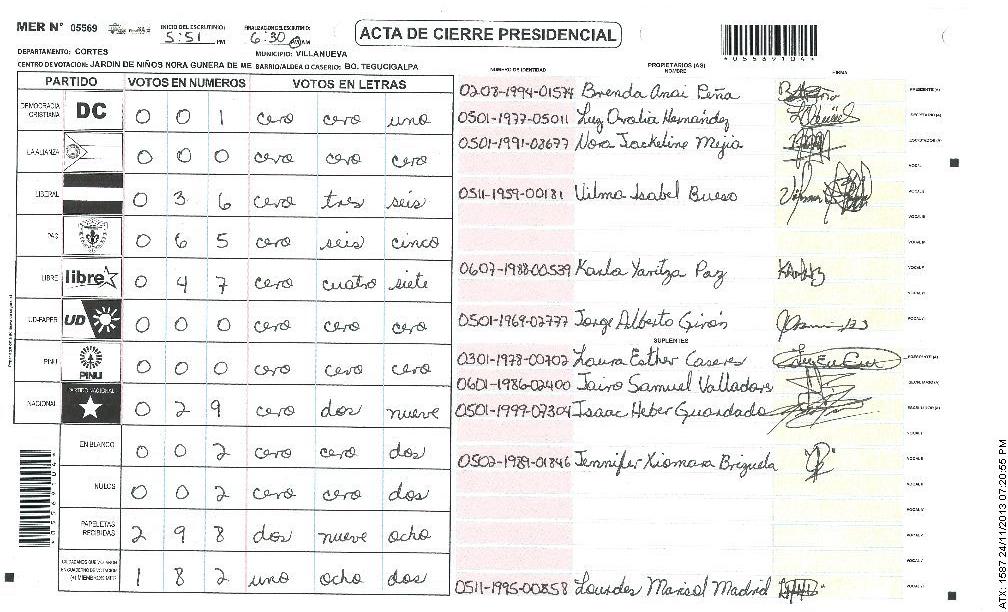 MER N° 05569 INICIO DEL ESCRUTINIO: 5:51 PM FINALIZACION ESCRUTINIO: 6:30 PM AM
ACTA DE CIERRE PRESIDENCIAL
*05569104*
DEPARTAMENTO: CORTES MUNICIPIO: VILLANUEVA
CENTRO DE VOTACION: JARDIN DE NIÑOS NORA GUNERA DE ME BARRIO/ALDEA O CASERIO: BO. TEGUCIGALPA
PARTIDO VOTOS EN NUMEROS VOTOS EN LETRAS
DEMOCRACIA CRISTIANA DC 0 0 1 cero cero uno
LA ALIANZA 0 0 0 cero cero cero
LIBERAL 0 3 6 cero tres seis
PAC 0 6 5 cero seis cinco
LIBRE libre 0 4 7 cero cuatro siete
UD-FAPER UD 0 0 0 cero cero cero
PINU PINU 0 0 0 cero cero cero
NACIONAL PARTIDO NACIONAL 0 2 9 cero dos nueve
EN BLANCO 0 0 2 cero cero dos
NULOS 0 0 2 cero cero dos
PAPELETAS RECIBIDAS 2 9 8 dos nueve ocho
CIUDADANOS QUE VOTARON EN CUADERNO DE VOTACION (+) MIEMBROS MER 1 8 2 uno ocho dos
NUMERO DE IDENTIDAD PROPIETARIOS (AS) NOMBRE FIRMA
0208-1994-01574 Brenda Anai Peña PRESIDENTE (A)
0501-1977-05011 Luz Ovalia Hernández SECRETARIO (A)
0501-1991-08677 Nora Jackeline Mejia ESCRUTADOR (A)
VOCAL I
0511-1959-00181 Vilma Isabel Bueso VOCAL II
VOCAL III
VOCAL IV
0607-1988-00539 Karla Yaritza Paz VOCAL V
0501-1969-02777 Jorge Alberto Girón
SUPLENTES
0301-1978-00702 Laura Esther Caseres PRESIDENTE (A)
0601-1986-02400 Jairo Samuel Valladares SECRETARIO (A)
0501-1999-07304 Isaac Heber Guardado ESCRUTADOR (A)
VOCAL I
0502-1989-01846 Jennifer Xiomara Brizuela VOCAL II
0511-1995-00858 Lourdes Marisol Madrid
ATX: 1587 24/11/2013 07:20:55 PM